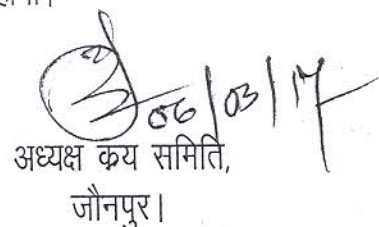 06/03/17
अध्यक्ष क्रय समिति,
जौनपुर।